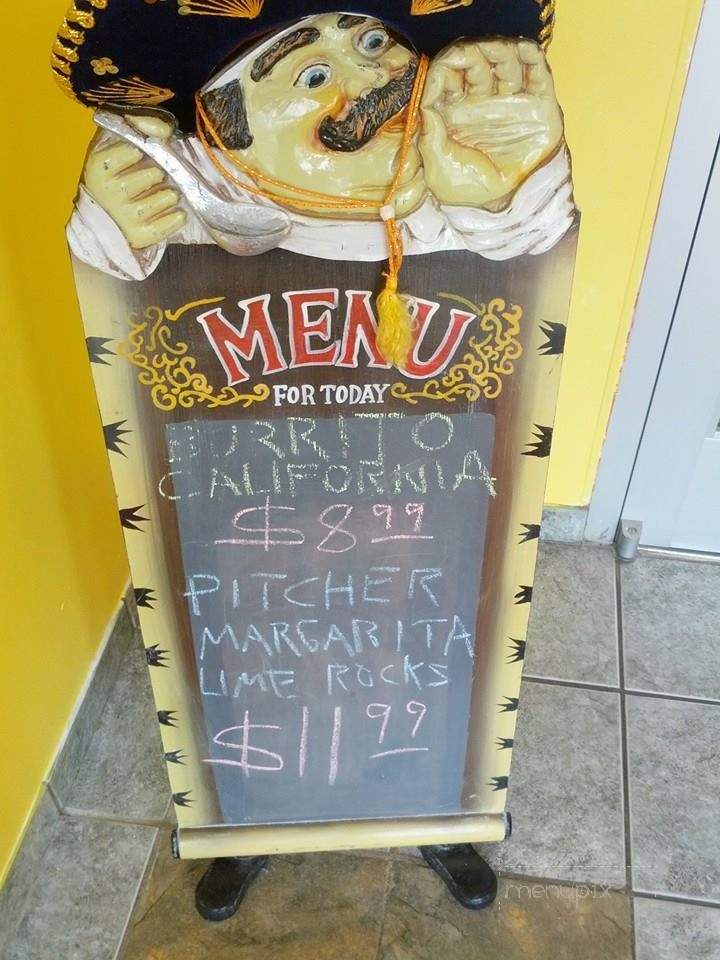 MENU
FOR TODAY
BURRITO
CALIFORNIA
$8.99
PITCHER
MARGARITA
LIME ROCKS
$11.99
menupix